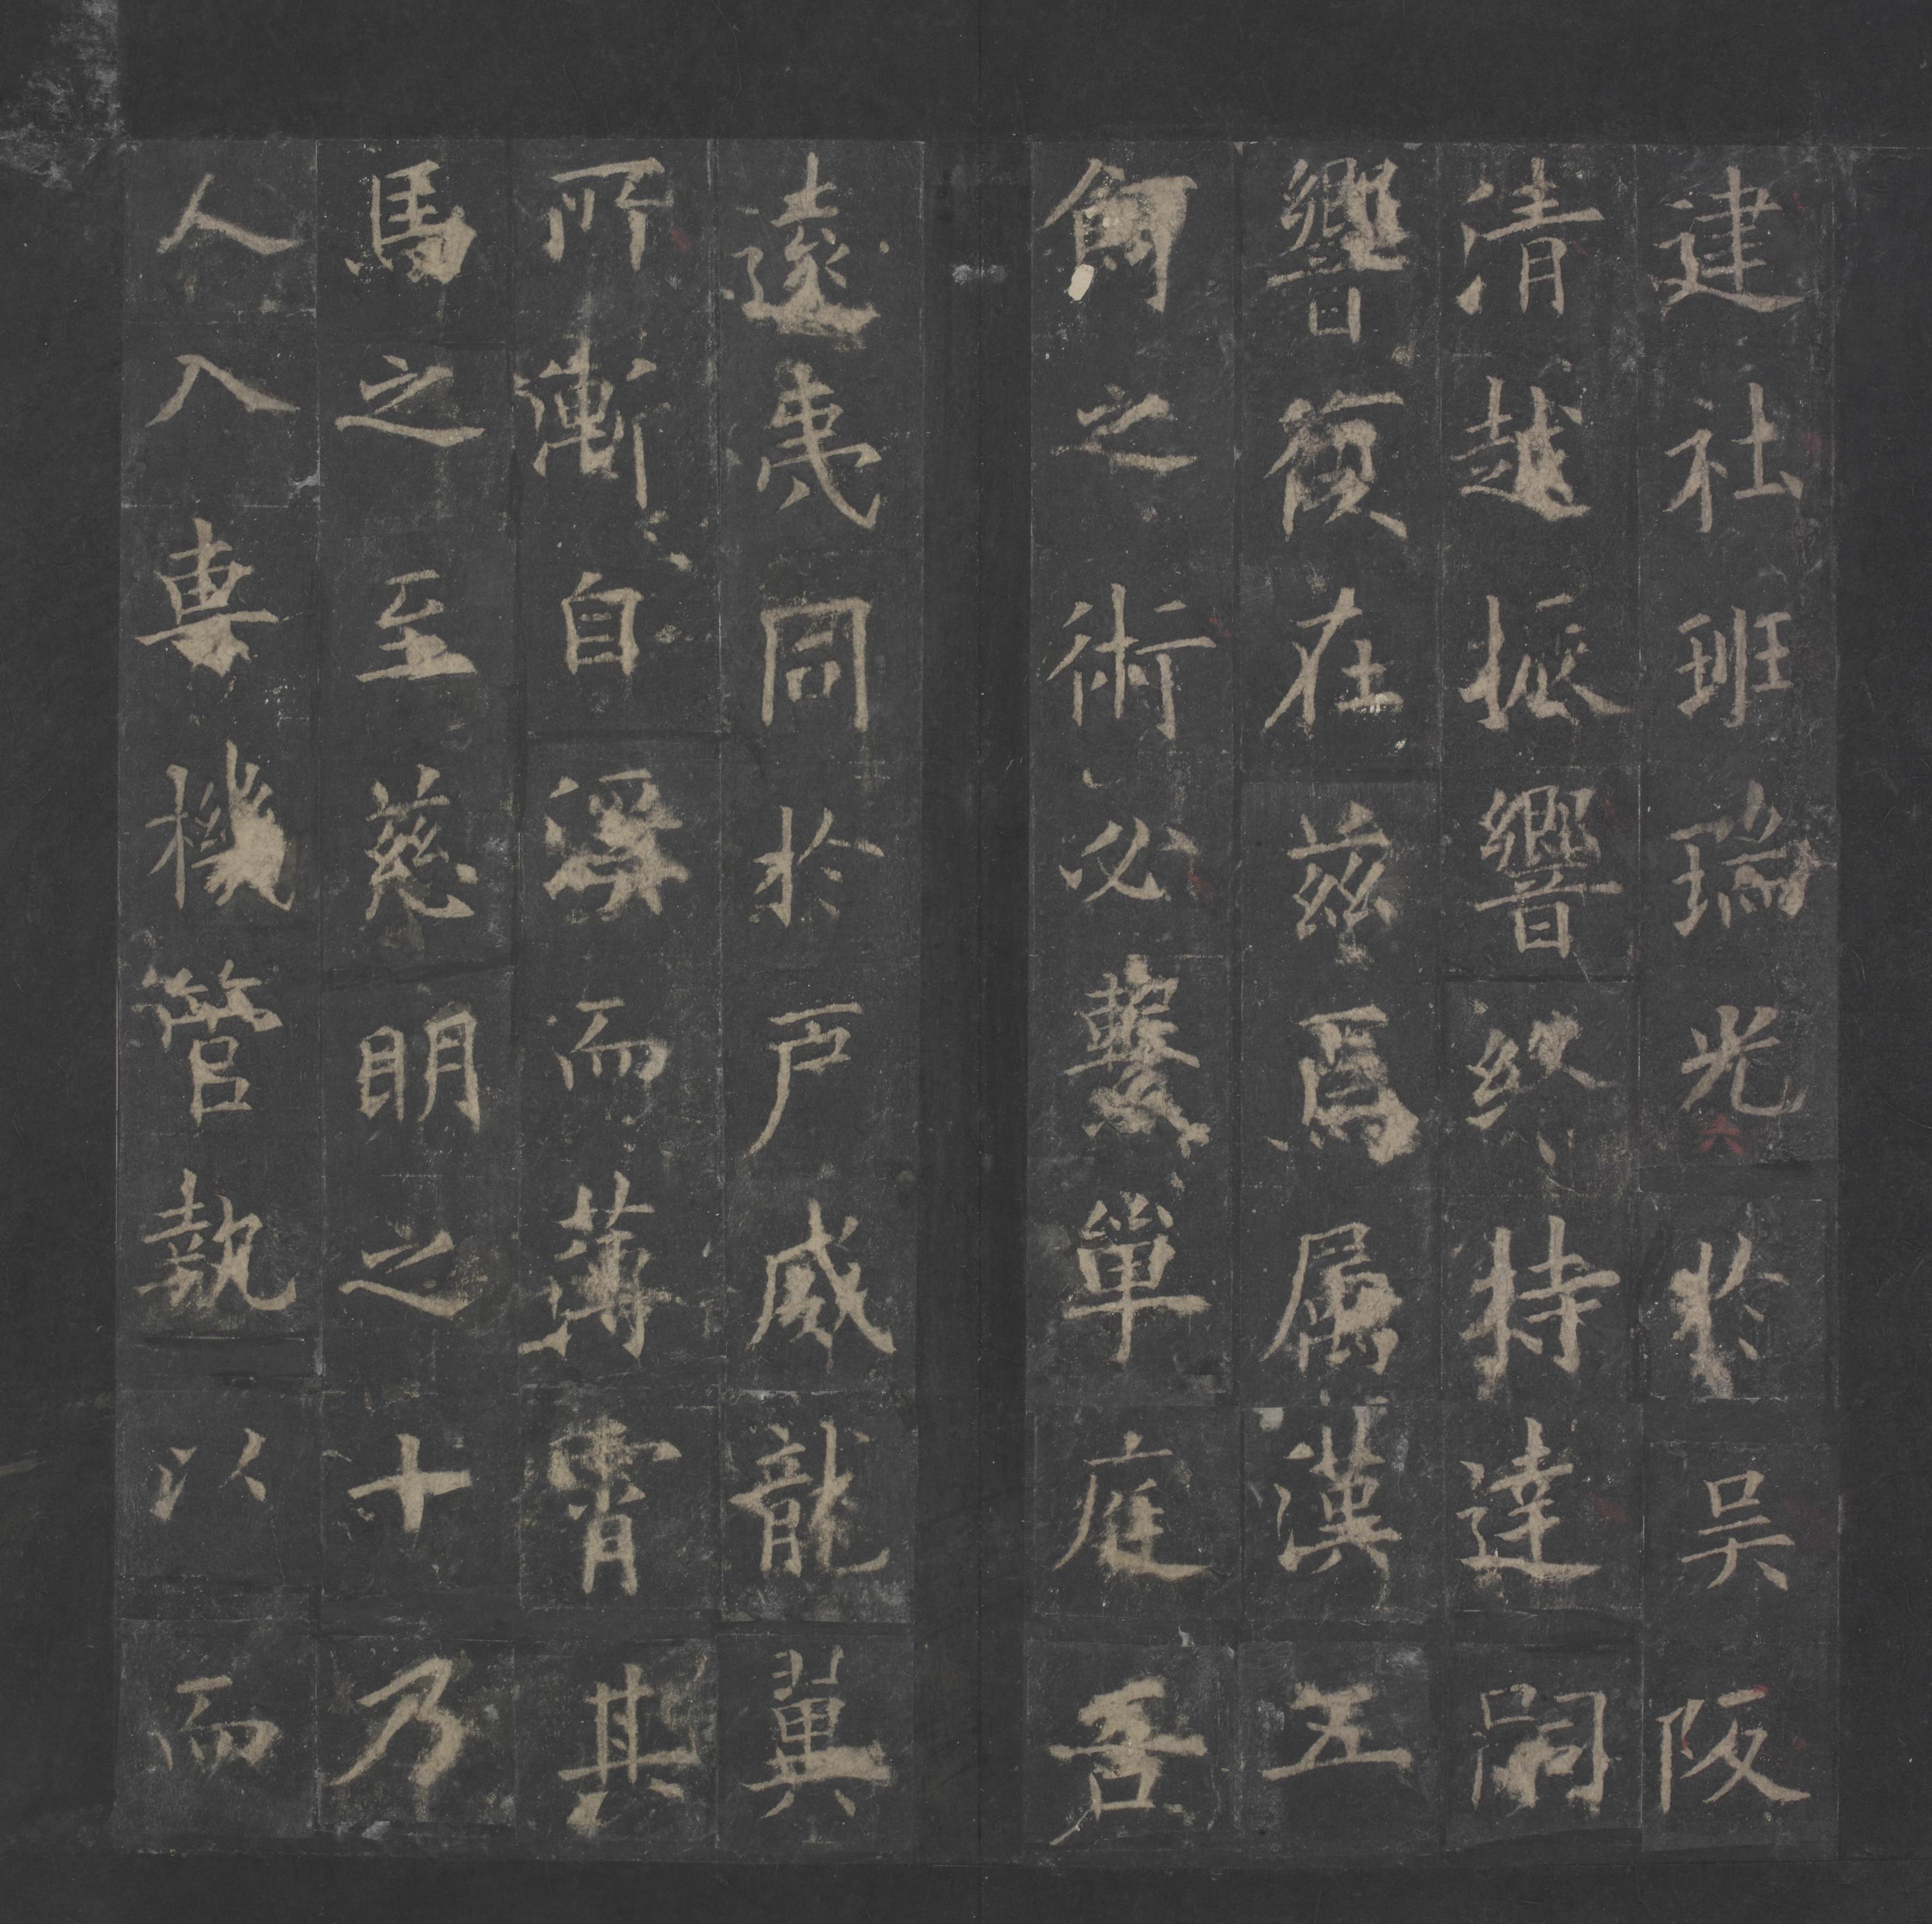 建社班瑞光於吳阪
清越振響終特達嗣
響復在茲爲屬漢五
餌之術必繫單庭吾
遠夷同於戶威龍冀
所漸自溪而薄霄其
馬之至慈明之十乃
人入專機管執以而